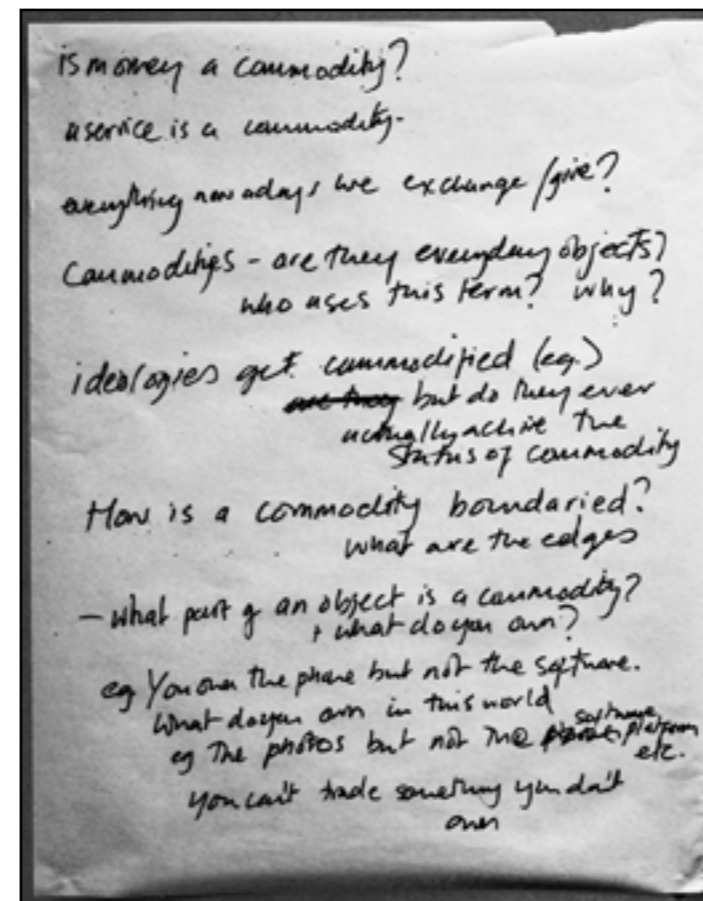 is money a commodity?
a service is a commodity.
everything nowadays we exchange/give?
Commodities - are they everyday objects?
who uses this term? why?
ideologies get commodified (eg.)
are they but do they ever
actually achive the
status of commodity
How is a commodity boundaried?
what are the edges
- what part of an object is a commodity?
+ what do you own?
eg You own the phone but not the software.
What do you own in this world
eg The photos but not the software, platform
etc.
you can't trade something you don't
own